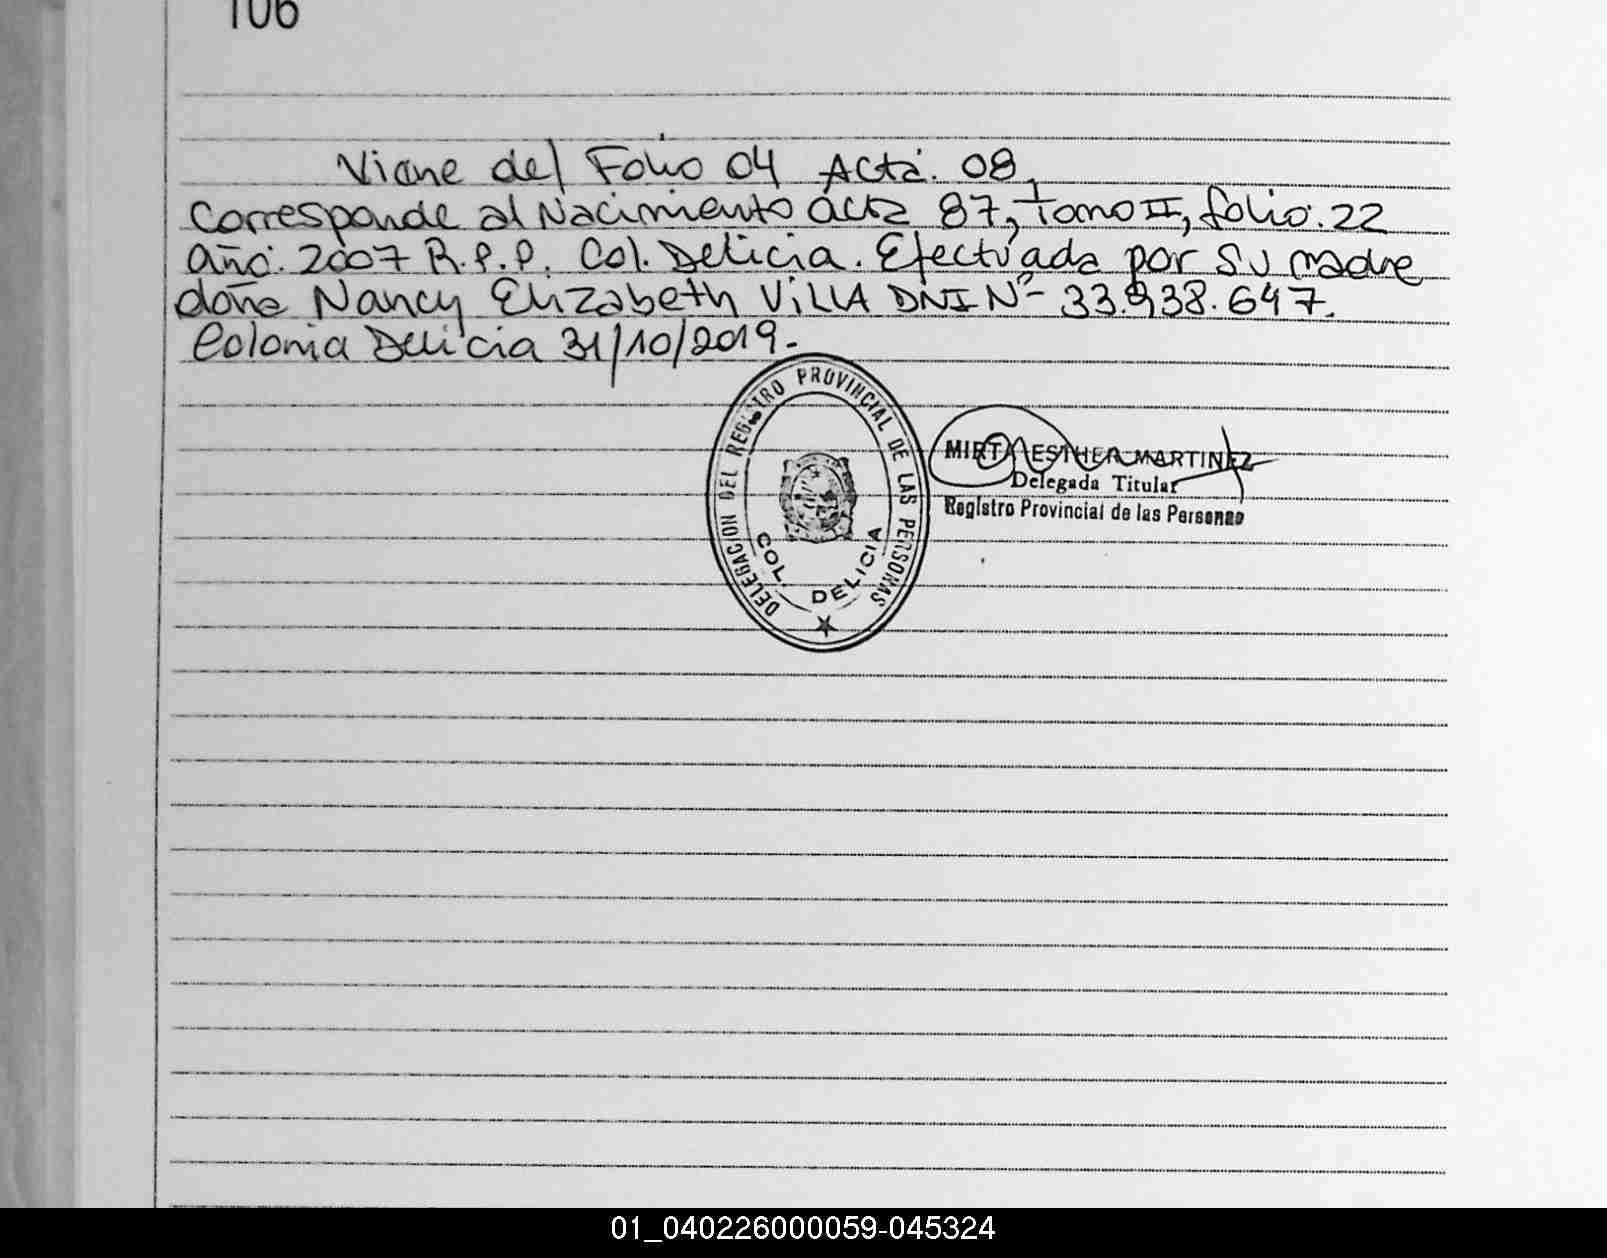 106
Viene del Folio 04 Acta. 08.
Corresponde al Nacimiento acta 87, Tomo II, folio. 22
año. 2007 R.P.P. Col. Delicia. Efectuada por su madre
doña Nancy Elizabeth VILLA DNI Nº- 33.938.647.
Colonia Delicia 31/10/2019.-
DELEGACION DEL REGISTRO PROVINCIAL DE LAS PERSONAS
COL. DELICIA
MIRTA ESTHER MARTINEZ
Delegada Titular
Registro Provincial de las Personas
01_040226000059-045324